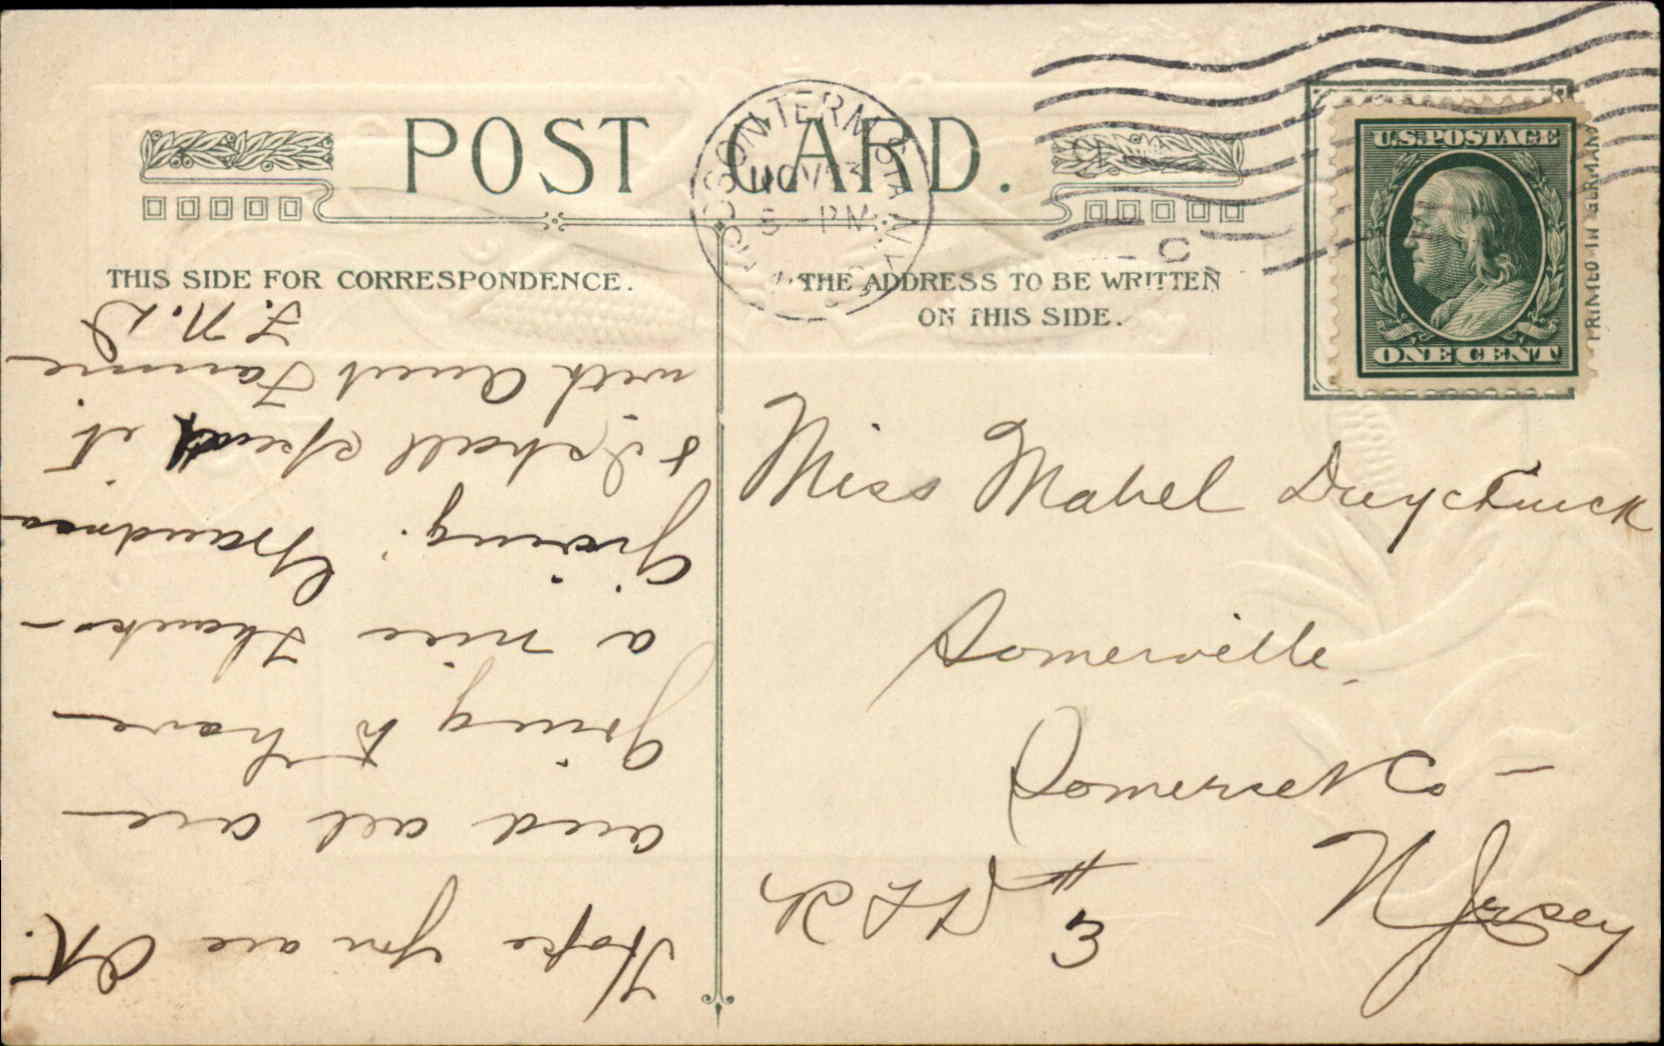 POST CARD.
HUDSON TERM. STA. N.Y.
NOV 23
5 - PM
THIS SIDE FOR CORRESPONDENCE.
THE ADDRESS TO BE WRITTEN
ON THIS SIDE.
U.S. POSTAGE
ONE CENT
PRINTED IN GERMANY
Hope you are OK.
and all are
going to have
a nice Thanks-
giving. Grandma
& I shall spend it
with Aunt Fannie
F. N. D
Miss Mabel Duyckinck
Somerville
Somerset Co -
N Jersey
R F D # 3